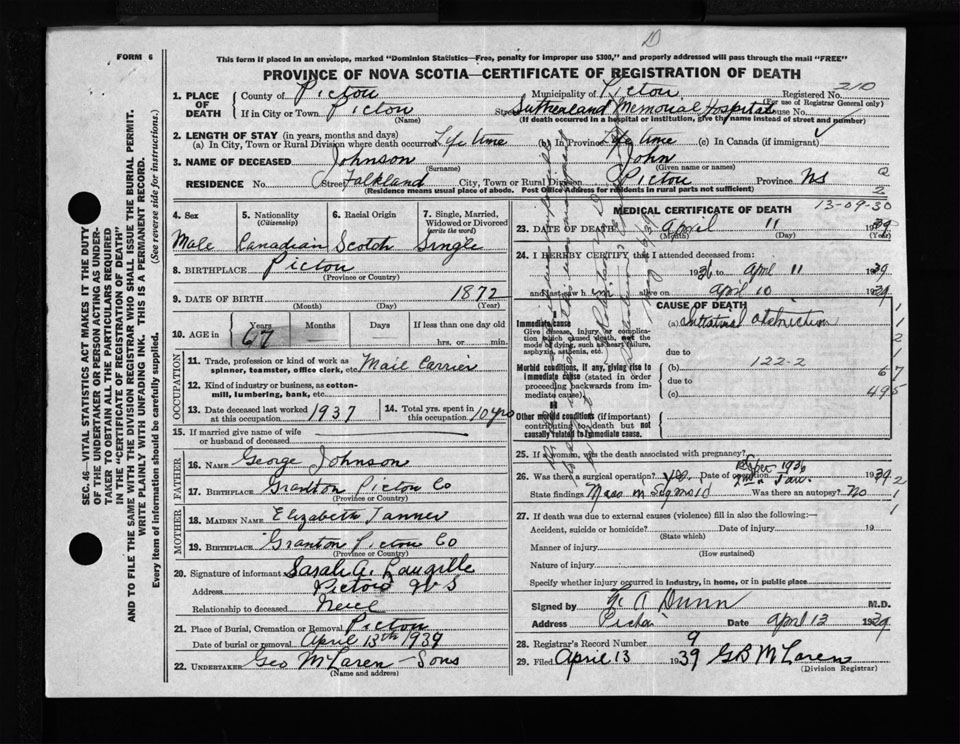 FORM 6
This form if placed in an envelope, marked "Dominion Statistics—Free, penalty for improper use $300," and properly addressed will pass through the mail "FREE"
PROVINCE OF NOVA SCOTIA—CERTIFICATE OF REGISTRATION OF DEATH
SEC. 46—VITAL STATISTICS ACT MAKES IT THE DUTY
OF THE UNDERTAKER OR PERSON ACTING AS UNDER-
TAKER TO OBTAIN ALL THE PARTICULARS REQUIRED
IN THE "CERTIFICATE OF REGISTRATION OF DEATH"
AND TO FILE THE SAME WITH THE DIVISION REGISTRAR WHO SHALL ISSUE THE BURIAL PERMIT.
WRITE PLAINLY WITH UNFADING INK. THIS IS A PERMANENT RECORD.
Every item of information should be carefully supplied. (See reverse side for instructions.)
1. PLACE OF DEATH County of Pictou Municipality of Pictou Registered No. 210
(For use of Registrar General only)
If in City or Town Pictou (Name) Street Sutherland Memorial Hospital House No.
(If death occurred in a hospital or institution, give its name instead of street and number)
2. LENGTH OF STAY (in years, months and days)
(a) In City, Town or Rural Division where death occurred Life time (b) In Province Life time (c) In Canada (if immigrant)
3. NAME OF DECEASED Johnson (Surname) John (Given name or names)
RESIDENCE No. Street Falkland City, Town or Rural Division Pictou Province NS
(Residence means usual place of abode. Post Office Address for residents in rural parts not sufficient)
4. Sex 5. Nationality (Citizenship) 6. Racial Origin 7. Single, Married, Widowed or Divorced (write the word)
Male Canadian Scotch Single
8. BIRTHPLACE Pictou
(Province or Country)
9. DATE OF BIRTH 1872
(Month) (Day) (Year)
10. AGE in Years Months Days If less than one day old
67 hrs. or min.
OCCUPATION
11. Trade, profession or kind of work as spinner, teamster, office clerk, etc. Mail Carrier
12. Kind of industry or business, as cotton-mill, lumbering, bank, etc.
13. Date deceased last worked at this occupation 1937 14. Total yrs. spent in this occupation 10 yrs
15. If married give name of wife or husband of deceased
FATHER
16. NAME George Johnson
17. BIRTHPLACE Granton Pictou Co
(Province or Country)
MOTHER
18. MAIDEN NAME Elizabeth Tanner
19. BIRTHPLACE Granton Pictou Co
(Province or Country)
20. Signature of informant Sarah A. Langille
Address Pictou N S
Relationship to deceased
21. Place of Burial, Cremation or Removal Pictou
Date of burial or removal April 13th 1939
22. UNDERTAKER Geo McLaren - Sons
(Name and address)
MEDICAL CERTIFICATE OF DEATH 13-09-30
23. DATE OF DEATH April 11 1939
(Month) (Day) (Year)
24. I HEREBY CERTIFY, that I attended deceased from:
1936 to April 11 1939
and last saw him alive on April 10 1939
CAUSE OF DEATH
Immediate cause
Give disease, injury or complication which caused death, not the mode of dying, such as heart failure, asphyxia, asthenia, etc.
(a) Intestinal obstruction
due to
Morbid conditions, if any, giving rise to immediate cause (stated in order proceeding backwards from immediate cause).
(b) 122-2
due to
(c) 495
Other morbid conditions (if important) contributing to death but not causally related to immediate cause.
25. If a woman, was the death associated with pregnancy?
26. Was there a surgical operation? yes Date of operation 1936
2nd Jan. 1939
State findings Mass in Sigmoid Was there an autopsy? No
27. If death was due to external causes (violence) fill in also the following:—
Accident, suicide or homicide? Date of injury 19
(State which)
Manner of injury
(How sustained)
Nature of injury
Specify whether injury occurred in industry, in home, or in public place
Signed by Dunn M.D.
Address Pictou Date April 12 1939
28. Registrar's Record Number 9
29. Filed April 13 1939 G B McLaren
(Division Registrar)